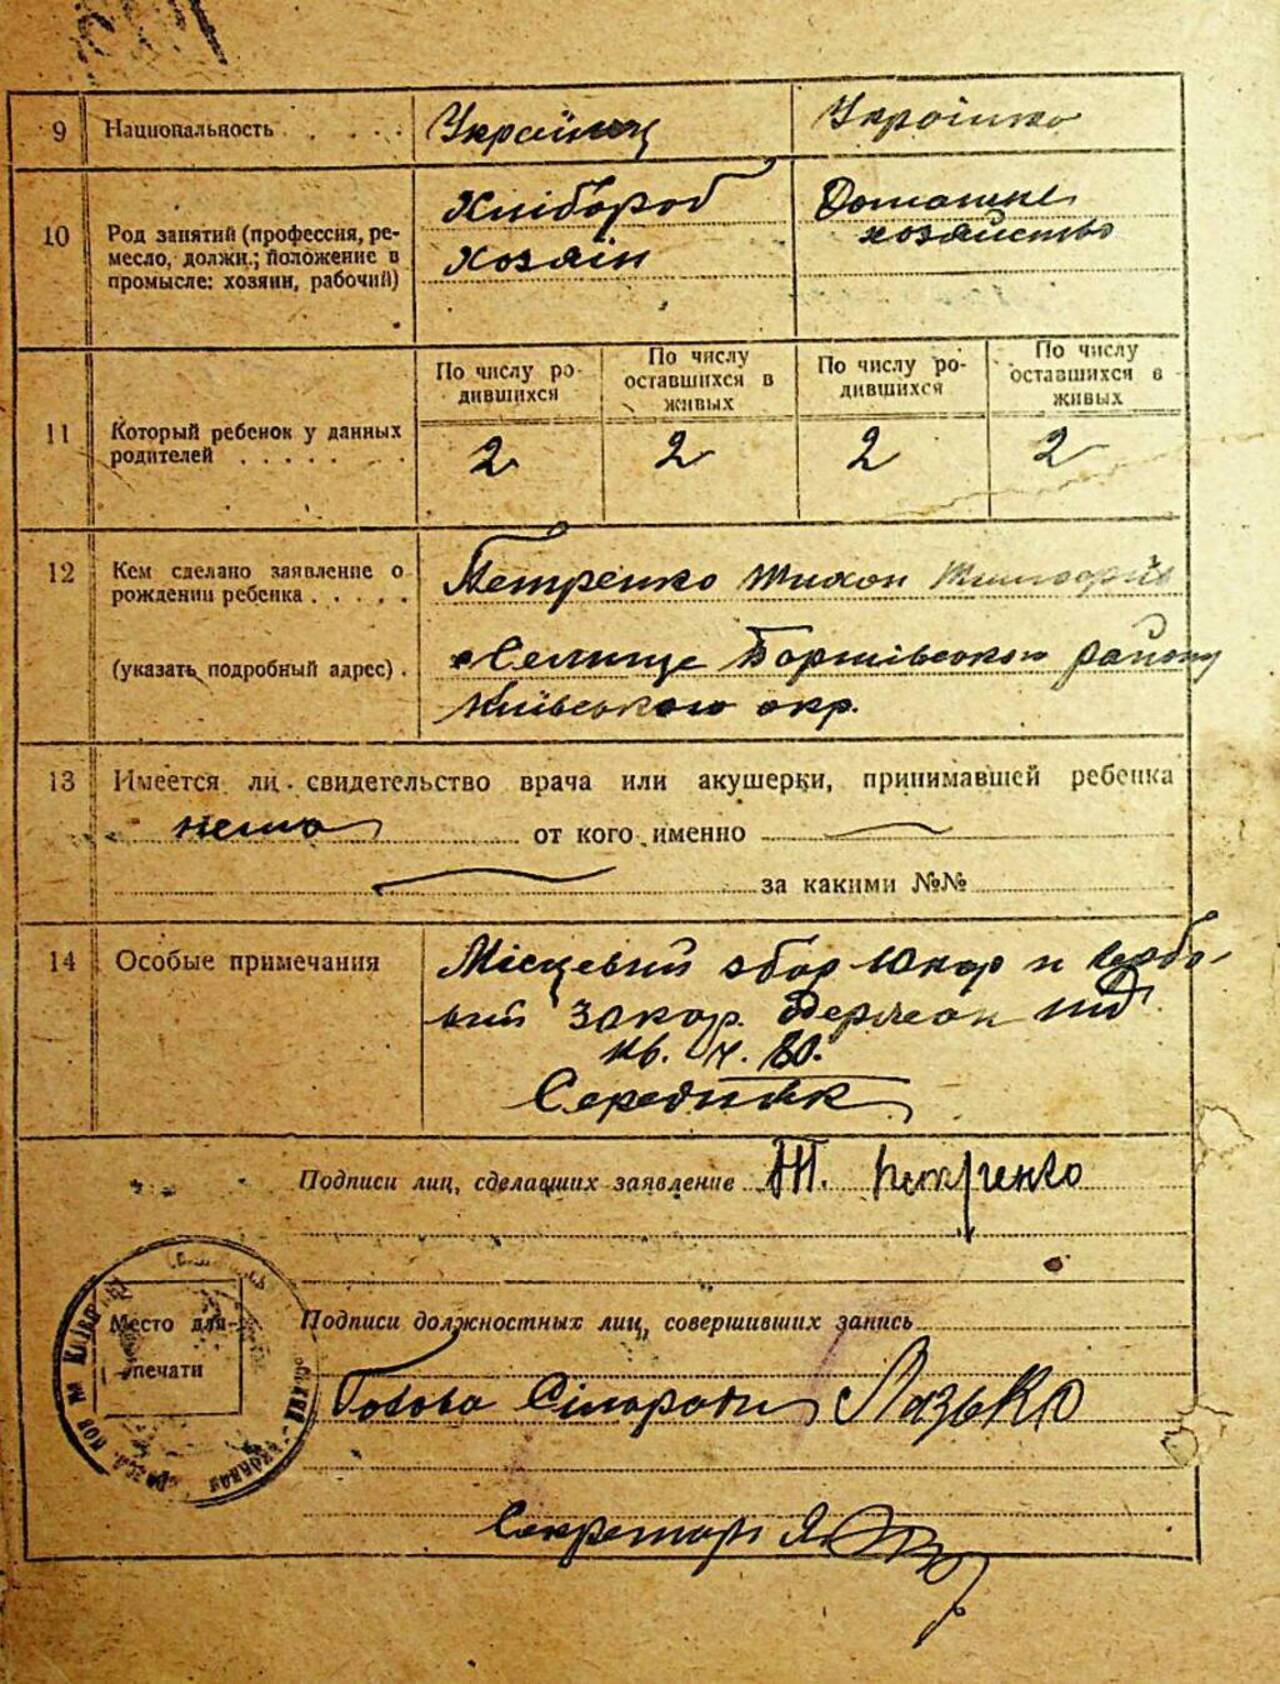 9 Национальность . . . . Українец Українка
10 Род занятий (профессия, ре-
месло, должн.; положение в
промысле: хозяин, рабочий)
Хлібороб
Хозяін
Домашнє
хозяйство
11 Который ребенок у данных
родителей . . . . . . .
По числу ро-
дившихся
По числу
оставшихся в
живых
По числу ро-
дившихся
По числу
оставшихся в
живых
2 2 2 2
12 Кем сделано заявление о
рождении ребенка . . . . .
(указать подробный адрес) .
Петренко Тихон
Селище Баришівського району
Київського окр.
13 Имеется ли свидетельство врача или акушерки, принимавшей ребенка
нема от кого именно
за какими №№
14 Особые примечания
Місцевий збор
кв. ч. 80.
Середняк
Подписи лиц, сделавших заявление Т. Петренко
Место для
печати
Подписи должностных лиц, совершивших запись
Голова Сільради Лазько
Секретарь